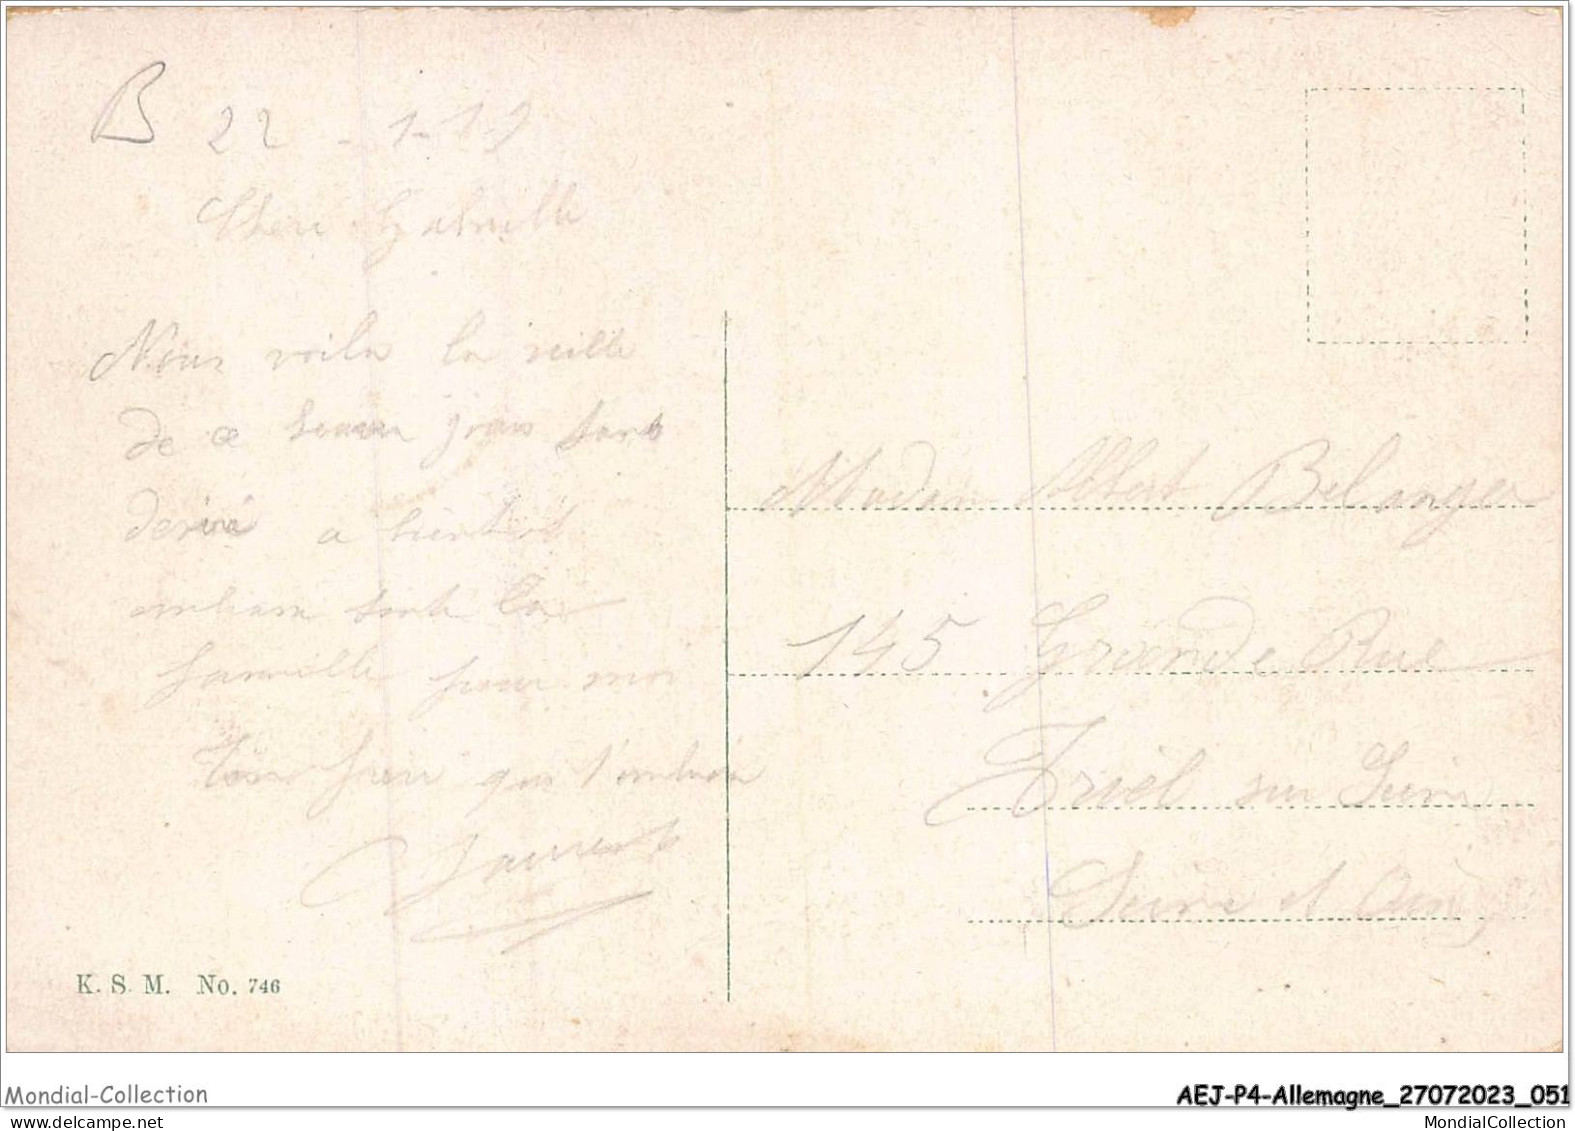 B 22 - 1-19
Chere Gabrielle
Nous voila la veille
de ce beaux jours
a bientot
toute la
famille pour moi
Ton frere qui
Laurent
Madam Albert Belanger
145 Grande Rue
Triel sur Seine
Seine et Oise
K. S. M. No. 746
Mondial-Collection
AEJ-P4-Allemagne_27072023_051
www.delcampe.net
MondialCollection